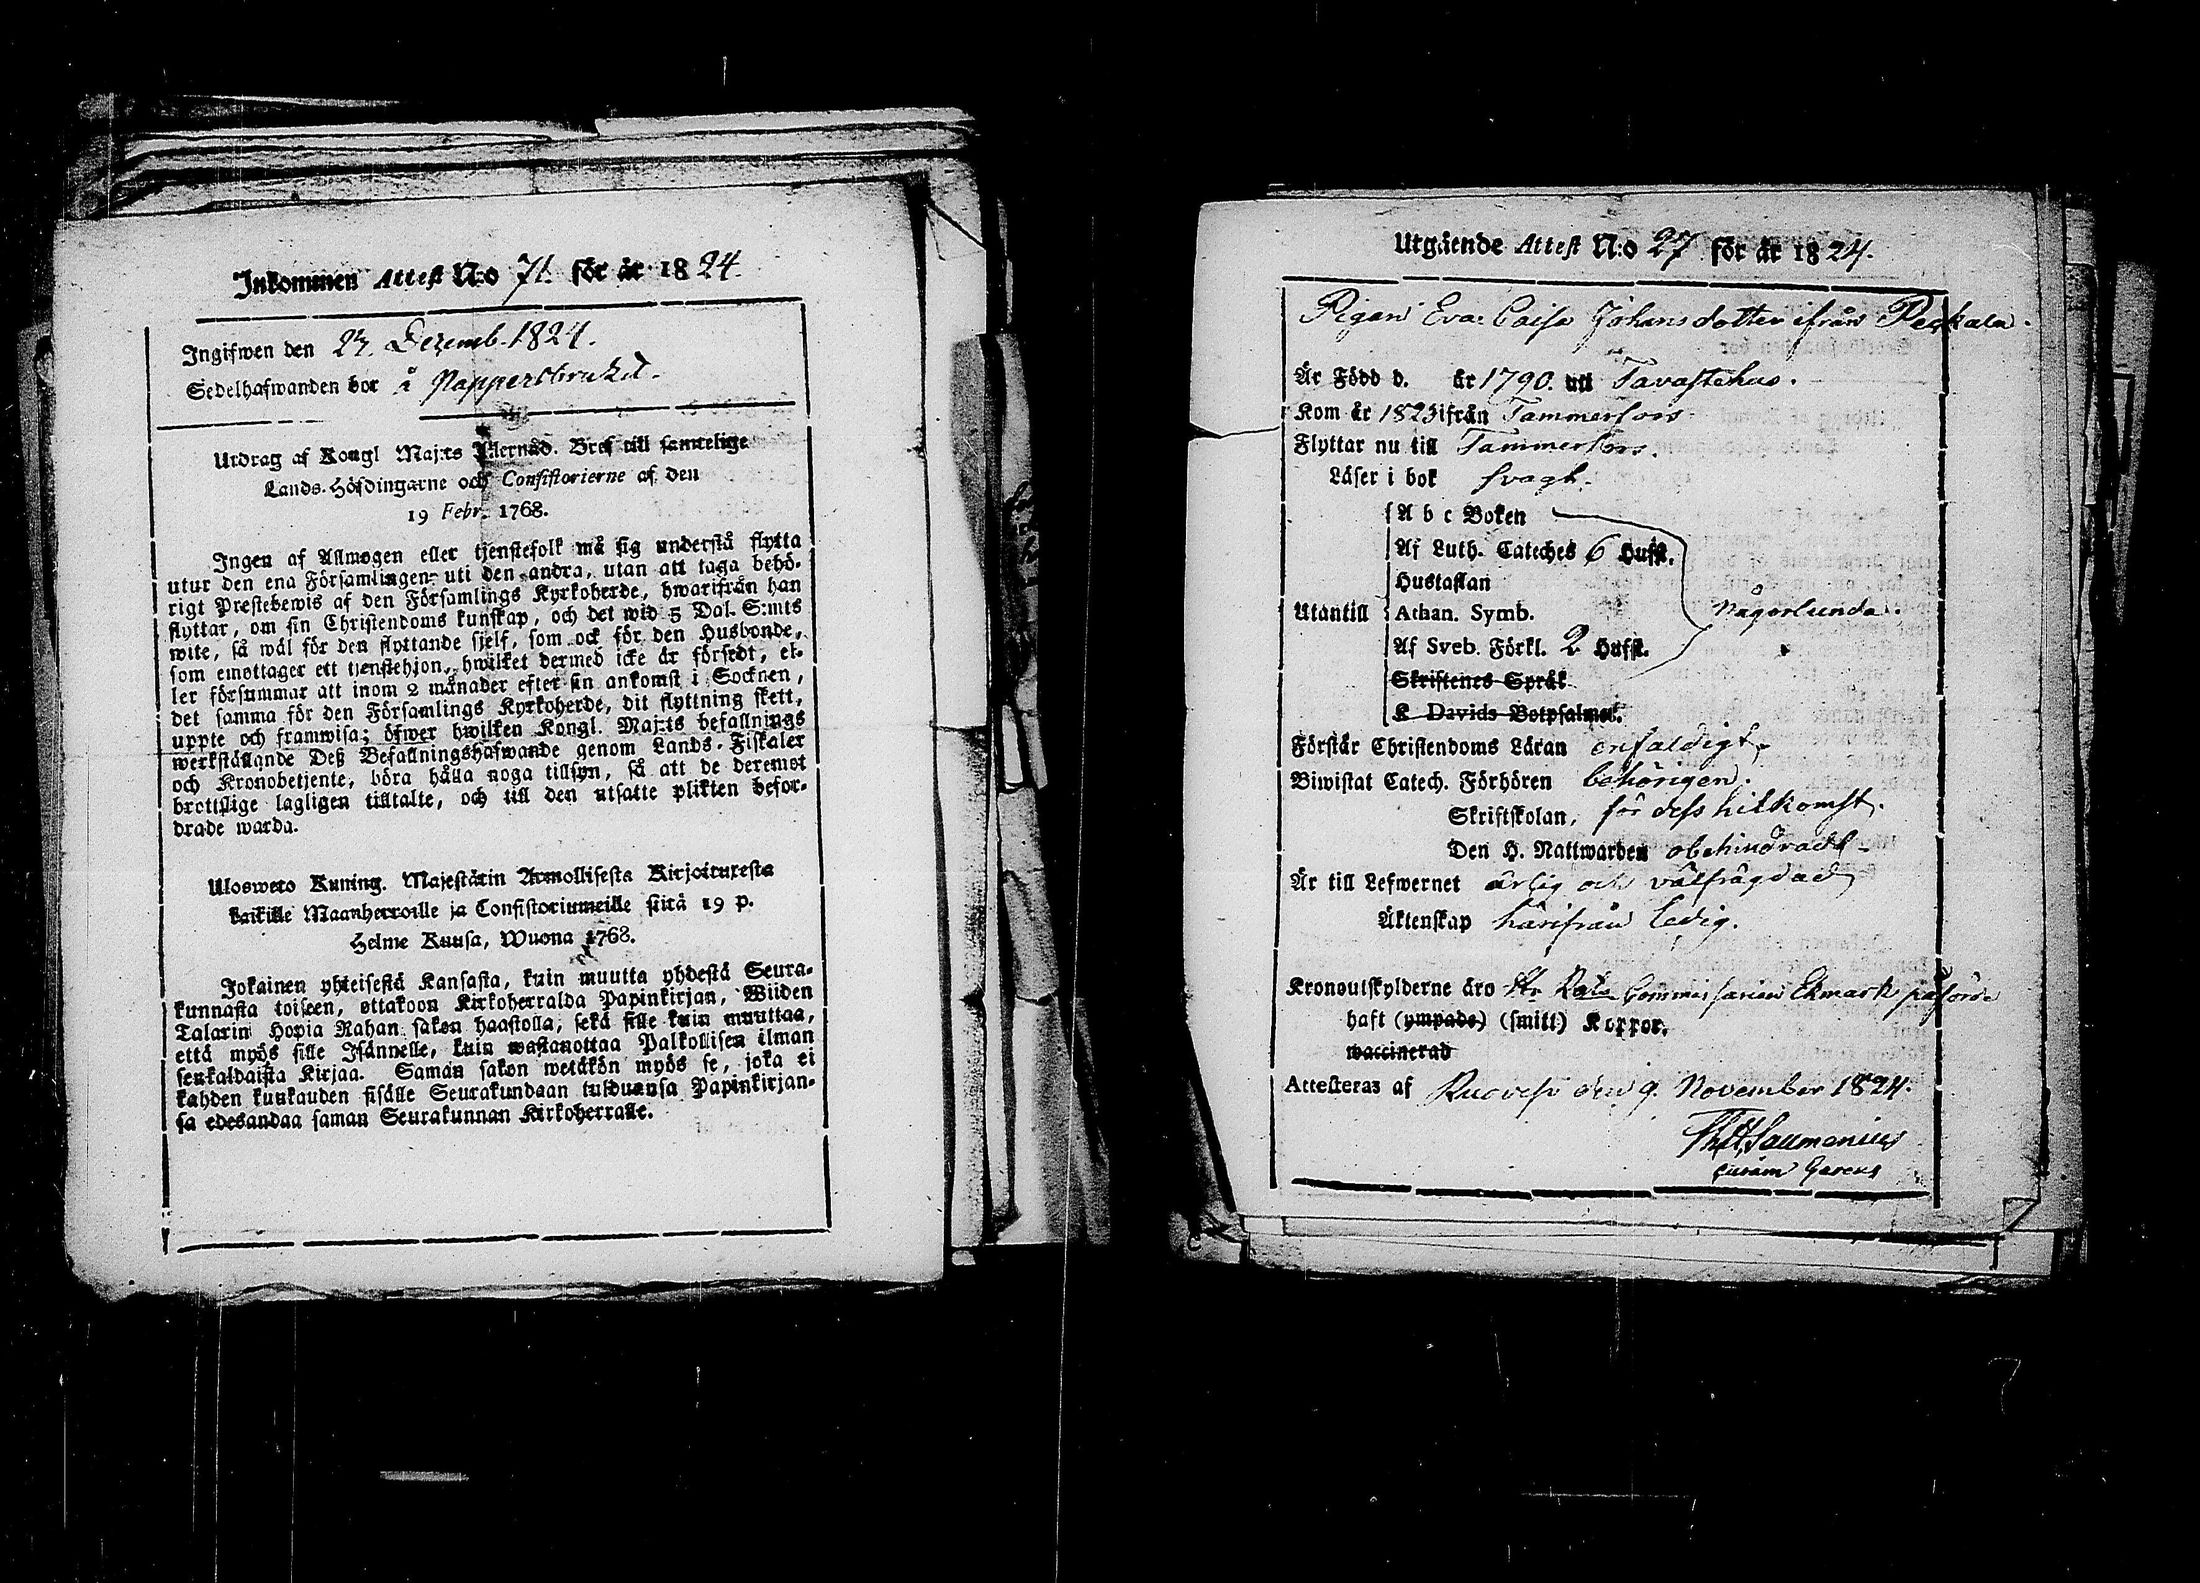 Inkommen Attest N:o 71. för år 1824.
Ingifwen den 27. Dezemb. 1824.
Sedelhafwanden bor å Pappersbruket.
Utdrag af Kongl Maj:ts Allernåd. Bref till samtelige
Lands-Höfdingarne och Consistorierne af den
19 Febr. 1768.
Ingen af Allmogen eller tjenstefolk må sig understå flytta
utur den ena Församlingen uti den andra, utan att taga behö-
rigt Prestebewis af den Församlings Kyrkoherde, hwarifrån han
flyttar, om sin Christendoms kunskap, och det wid 5 Dal. S:mts
wite, så wäl för den flyttande sjelf, som ock för den Husbonde,
som emottager ett tjenstehjon, hwilket dermed icke är försedt, el-
ler försummar att inom 2 månader efter sin ankomst i Socknen,
det samma för den Församlings Kyrkoherde, dit flyttning skett,
uppte och framwisa; öfwer hwilken Kongl. Maj:ts befallnings
werkställande Deß Befallningshafwande genom Lands-Fiskaler
och Kronobetjente, böra hålla noga tillsyn, så att de deremot
brottslige lagligen tilltalte, och till den utsatte plikten befor-
drade warda.
Uloswets Kuning. Majestätin Armollisesta Kirjoituxesta
kaikille Maanherroille ja Consistoriumeille siitä 19 p.
Helme Kuusa, Wuona 1768.
Jokainen yhteisestä Kansasta, kuin muutta yhdestä Seura-
kunnasta toiseen, ottakoon Kirkoherralda Papinkirjan, Wiiden
Talarin Hopia Rahan sakon haastolla, sekä sille kuin muuttaa,
että myös sille Isännelle, kuin wastanottaa Palkollisen ilman
senkaldaista Kirjaa. Saman sakon wetäkön myös se, joka ei
kahden kuukauden sisälle Seurakundaan tulduansa Papinkirjan-
sa edesandaa saman Seurakunnan Kirkoherralle.
Utgående Attest N:o 27 för år 1824.
Pigan Eva Caisa Johansdotter ifrån Pekkala.
Är Född d. år 1790. uti Tavastehus.
Kom år 1823 ifrån Tammerfors
Flyttar nu till Tammerfors.
Läser i bok svagt.
A b c Boken
Af Luth. Cateches 6 Hufst.
Hustaflan
Utantill Athan. Symb. någorlunda.
Af Sveb. Förkl. 2 Hufst.
Skriftenes Språk
K Davids Botpsalmer.
Förstår Christendoms Läran enfaldigt.
Biwistat Catech. Förhören behörigen.
Skriftskolan, för dess hitkomst.
Den H. Nattwarden obehindradt
Är till Lefwernet ärlig och välfrägdad
Äktenskap härifrån ledig.
Kronoutskylderne äro Commissarien Ekmark påförde
haft (ympade) (smitt) Koppor.
waccinerad
Attesteras af Ruovesi den 9. November 1824.
Saumenius
curam gerens